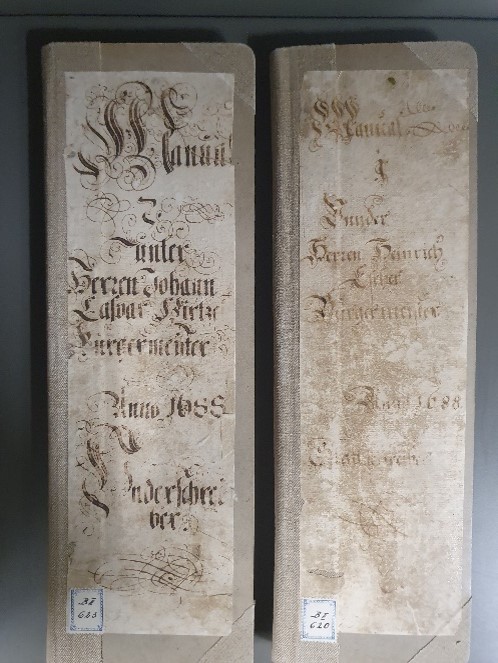 Manual
I
Unter
Herren Johann
Caspar Hirtze
Bürgermeister
Anno 1688
Underschrei
ber
B II
623
Manual
I
Under
Herren Heinrich
Escher
Bürgermeister
Anno 1688
B II
620